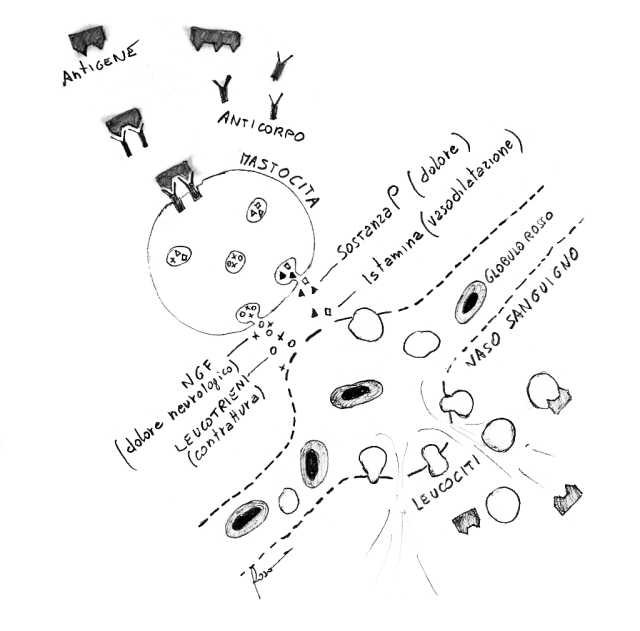 AntiGENE
ANTICORPO
MASTOCITA
SOSTANZA P (dolore)
Istamina (vasodilatazione)
GLOBULO ROSSO
VASO SANGUIGNO
NGF
(dolore neurologico)
LEUCOTRIENI
(contrattura)
LEUCOCITI